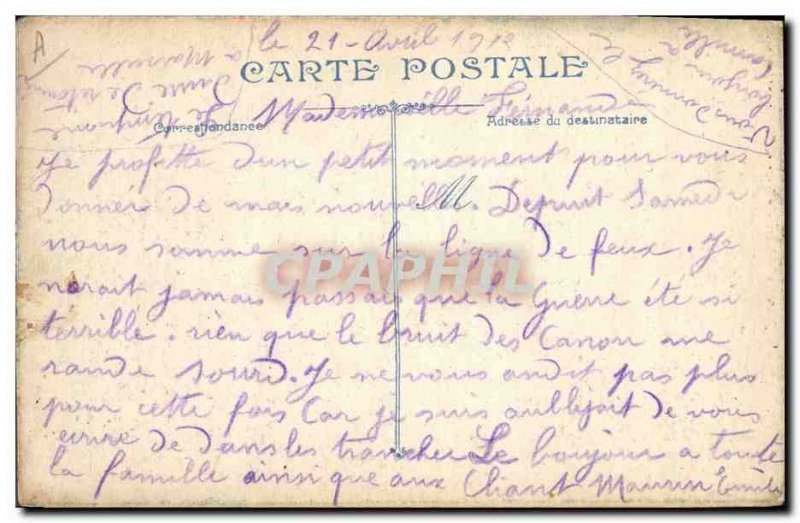 le 21 - Avril 191
CARTE POSTALE
Mademoiselle Fernande
Correspondance
Adresse du destinataire
Je profitte d'un petit moment pour vous
donner de mais nouvelle. Depuit Samedi
nous somme sur la ligne de feux. Je
norait jamais passais que la Guerre été si
terrible. rien que le bruit des Canon me
rande sourd. Je ne vous andit pas plus
pour cette fois Car je suis aublijait de vous
ecrire de dans les trancher Le boujour a toute
la famille ainsi que aux Cliant Maurin Emile
A
CPAPHIL